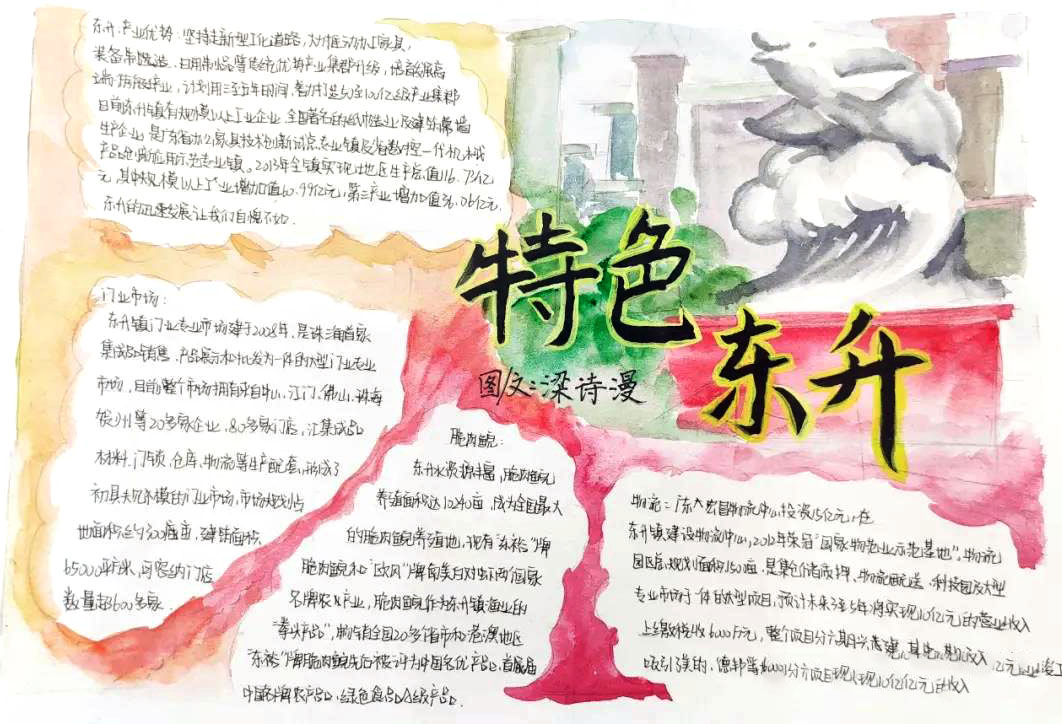 东升产业优势:坚持走新型工化道路,大力推动办工家具,
装备制造、日用制品等传统优势产业集群升级,培育发展高
端新兴产业,计划用三至五年时间,着力打造50至100亿级产业集群
目前东升镇有规模以上工业企业,全国著名的纸制造业及建外幕墙
生产企业,是广东省办公家具技术创新试点专业镇及省数控一代机械
产品创新应用示范专业镇。2013年全镇实现地区生产总值116.73亿
元,其中规模以上工业增加值60.99亿元,第三产业增加值36.06亿元.
东升的迅速发展让我们自愧不如.
特色
东升
图文:梁诗漫
门业市场:
东升镇门业专业市场建于2008年,是珠三角首家
集成品销售、产品展示和批发为一体的大型门业专业
市场,目前整个市场拥有来自中山、江门、佛山、珠海
广州等20多家企业,80多家门店,汇集成品
材料、门锁、仓库、物流等生产配套,形成了
初具大规模的门业市场,市场规划占
地面积约300亩,建筑面积
65000平方米,可容纳门店
数量超600多家.
脆肉鲩:
东升水资源丰富,脆肉鲩
养殖面积达10240亩,成为全国最大
的脆肉鲩养殖地,现有"东裕"牌
脆肉鲩和"欧风"牌南美白对虾两个国家
名牌农业产业,脆肉鲩作为东升镇渔业的
"拳头产品",畅销全国20多省市和港澳地区
"东裕"牌脆肉鲩先后被评为中国名优产品,首届届
中国名牌农产品,绿色食品A级产品.
物流:广东宏昌物流中心,投资15亿元,在
东升镇建设物流中心,2012年荣冠"国家物流业示范基地",物流
园区总规划面积150亩,是集仓储质押、物流配送、科技园及大型
专业市场于一体的大型项目,预计未来3至5年将实现10亿元的营业收入
上缴税收6000万元,整个项目分六期兴建,其中
吸引